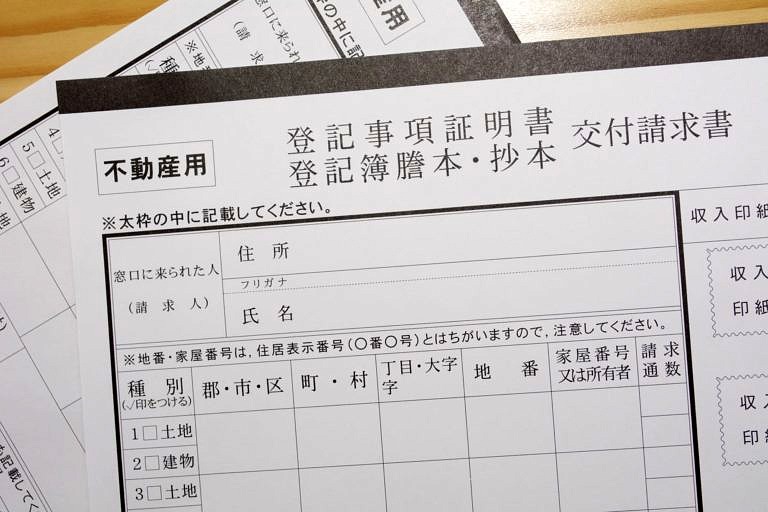 不動産用
登記事項証明書
登記簿謄本・抄本
交付請求書
※太枠の中に記載してください。
窓口に来られた人
(請求人)
住所
フリガナ
氏名
収入印紙
収入
印紙
収入
印紙
※地番・家屋番号は,住居表示番号(○番○号)とはちがいますので,注意してください。
種別
(✓印をつける)
郡・市・区
町・村
丁目・大字
字
地番
家屋番号
又は所有者
請求
通数
1□土地
2□建物
3□土地
産用
の中に記
窓口に来られ
(請求
※地
種
5□土地
6□建物
記載してく